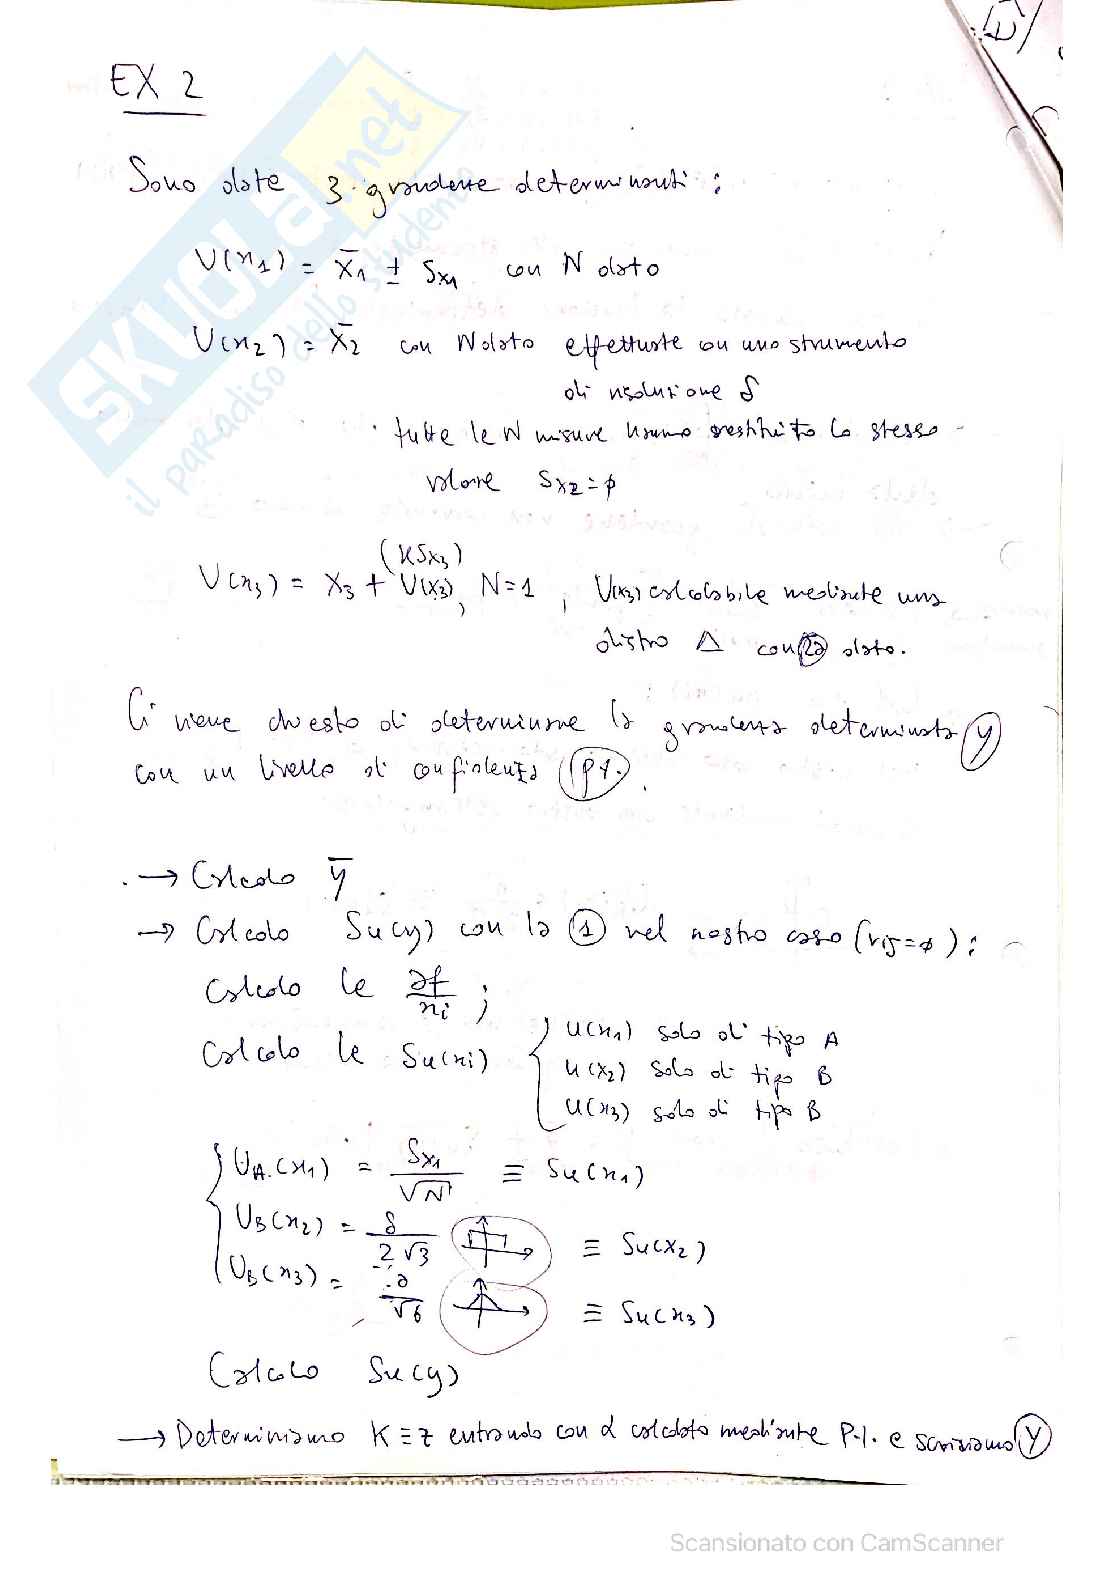 EX 2
Sono date 3 grandezze determinanti:
U(x1) = x̄1 ± Sx1 con N dato
U(x2) = x̄2 con N dato effettuate con uno strumento
di risoluzione δ
tutte le N misure hanno restituito lo stesso
valore Sx2=ϕ
(KSx3)
U(x3) = x3 + U(x3), N=1, U(x3) calcolabile mediante una
distro Δ con 2a dato.
Ci viene chiesto di determinare la grandezza determinata y
con un livello di confidenza p%.
→ Calcolo ȳ.
→ Calcolo Su(y) con la ① nel nostro caso (rij=ϕ):
Calcolo le ∂f/xi;
Calcolo le Su(xi) { u(x1) solo di tipo A
u(x2) solo di tipo B
u(x3) solo di tipo B
UA(x1) = Sx1/√N ≡ Su(x1)
UB(x2) = δ/2√3 ≡ Su(x2)
UB(x3) = a/√6 ≡ Su(x3)
Calcolo Su(y)
→ Determiniamo K≡z entrando con α calcolato mediante P.%. e scriviamo Y
SKUOLA.net
il paradiso dello studente
Scansionato con CamScanner